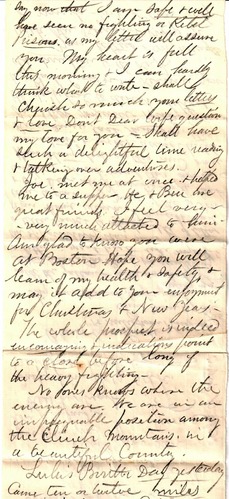 say now that I am safe & will
have seen no fighting or Rebel
Prisons, as my little will assure
you. My heart is full
this morning & I can hardly
think what to write - shall
cherish so much your letters
& love. Don't Dear wife question
my love for you - Shall have
such a delightful time reading
& talking over adventures.
Joe met me at once & helped
me to a supper. He & Bill are
great friends. I feel very -
very much attached to him.
Am glad to know you were
at Boston. Hope you will
learn of my health & safety, &
may it add to your enjoyment
for Christmas & New Year.
The whole prospect is indeed
encouraging & indications point
to a close before long of
the heavy fighting -
No Jones knows where the
enemy are. We are in an
impregnable position among
the Clinch Mountains, in
a beautiful Country.
Brother Day yesterday
Came ten or twelve miles